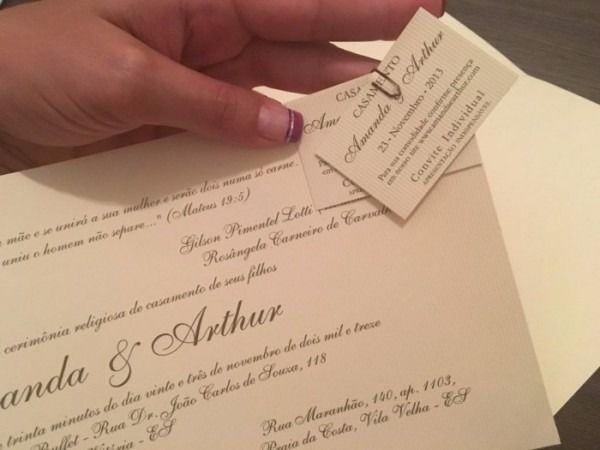 CASAMENTO
Amanda & Arthur
23 - Novembro - 2013
Para sua comodidade confirme presença
em nosso site www.amandaearthur.com
Convite Individual
APRESENTAÇÃO INDISPENSÁVEL
CASA
Am
mãe e se unirá a sua mulher e serão dois numa só carne.
uniu o homem não separe..." (Mateus 19:5)
Gilson Pimentel Lotti
Rosângela Carneiro de Carvalh
cerimônia religiosa de casamento de seus filhos
anda & Arthur
e trinta minutos do dia vinte e três de novembro de dois mil e treze
Buffet - Rua Dr. João Carlos de Souza, 118
Vitória - ES
Rua Maranhão, 140, ap. 1103,
Praia da Costa, Vila Velha - ES